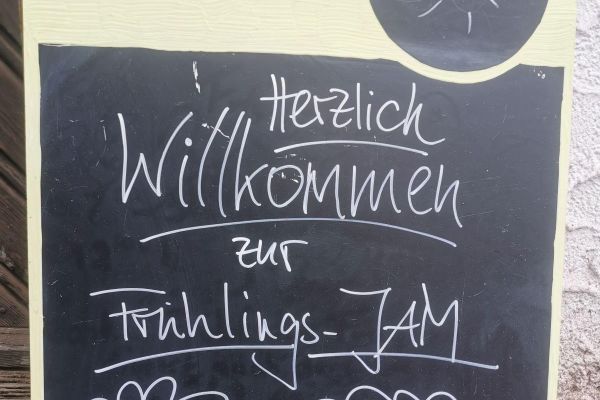 Herzlich
Willkommen
zur
Frühlings-JAM